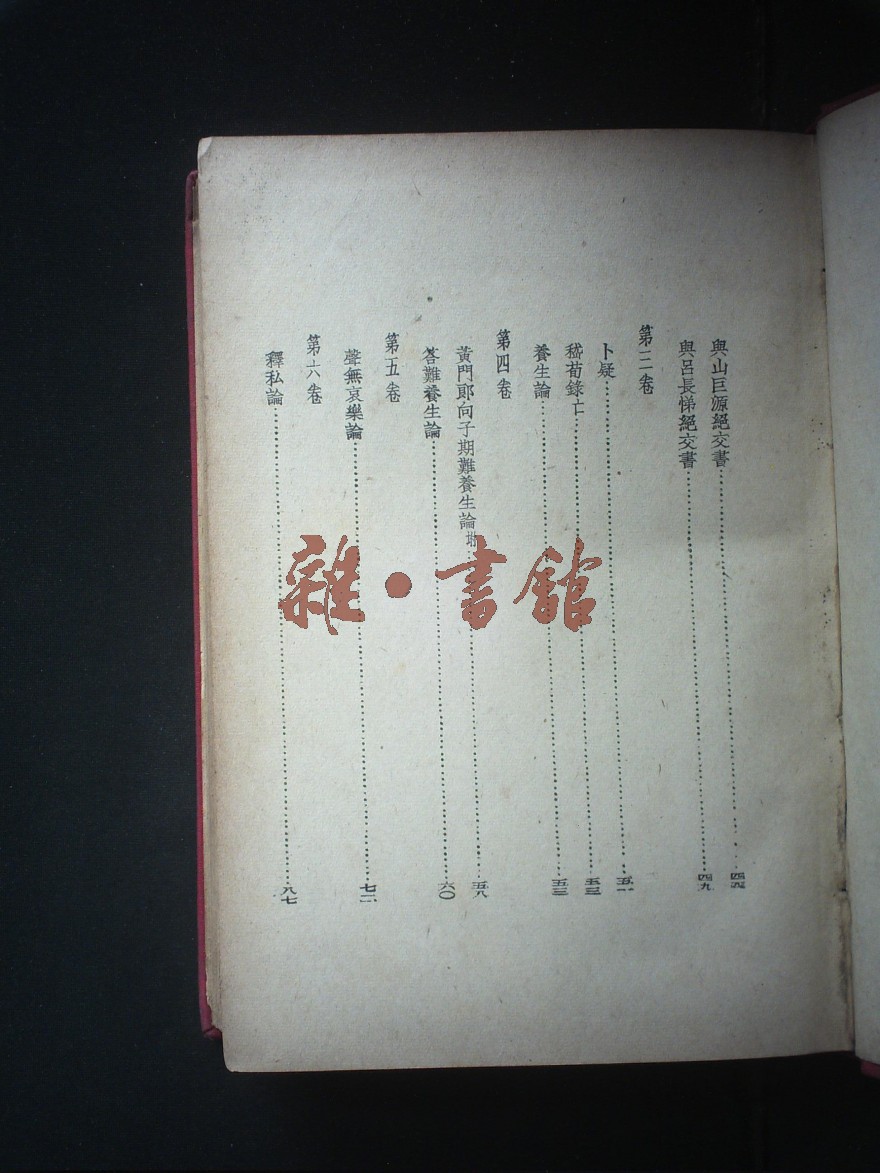 與山巨源絕交書
與呂長悌絕交書 四九
第三卷
卜疑 五一
嵇荀錄亡 五三
養生論 五三
第四卷
黃門郎向子期難養生論附 五八
答難養生論 六〇
第五卷
聲無哀樂論 七二
第六卷
釋私論 八七
雜·書館